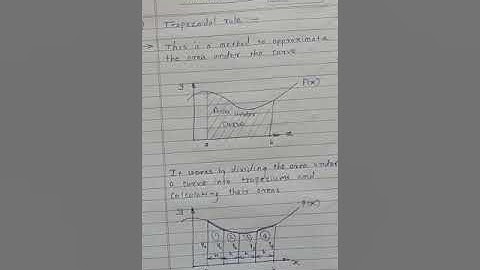 Trapezoidal rule :-
→ This is a method to approximate
the area under the curve
y
f(x)
Area under
curve
a
b
x
It works by dividing the area under
a curve into trapeziums and
calculating their areas
y
f(x)
① ② ③ ④
h h h h
x